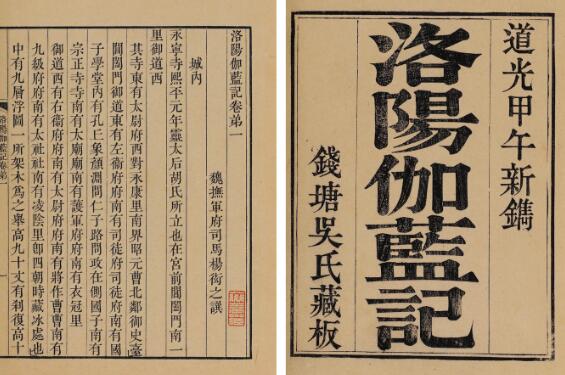 道光甲午新鐫
洛陽伽藍記
錢塘吳氏藏板
洛陽伽藍記卷弟一
魏撫軍府司馬楊衒之譔
城内
永寧寺熙平元年靈太后胡氏所立也在宮前閶闔門南一
里御道西
其寺東有太尉府西對永康里南界昭元曹北鄰御史臺
閶闔門御道東有左衞府府南有司徒府司徒府南有國
子學堂内有孔丘象顏淵問仁子路問政在側國子南有
宗正寺寺南有太廟廟南有護軍府府南有衣冠里
御道西有右衞府府南有太尉府府南有將作曹曹南有
九級府府南有太社社南有凌陰里卽四朝時藏冰處也
中有九層浮圖一所架木爲之舉高九十丈有刹復高十
洛陽伽藍記卷弟一